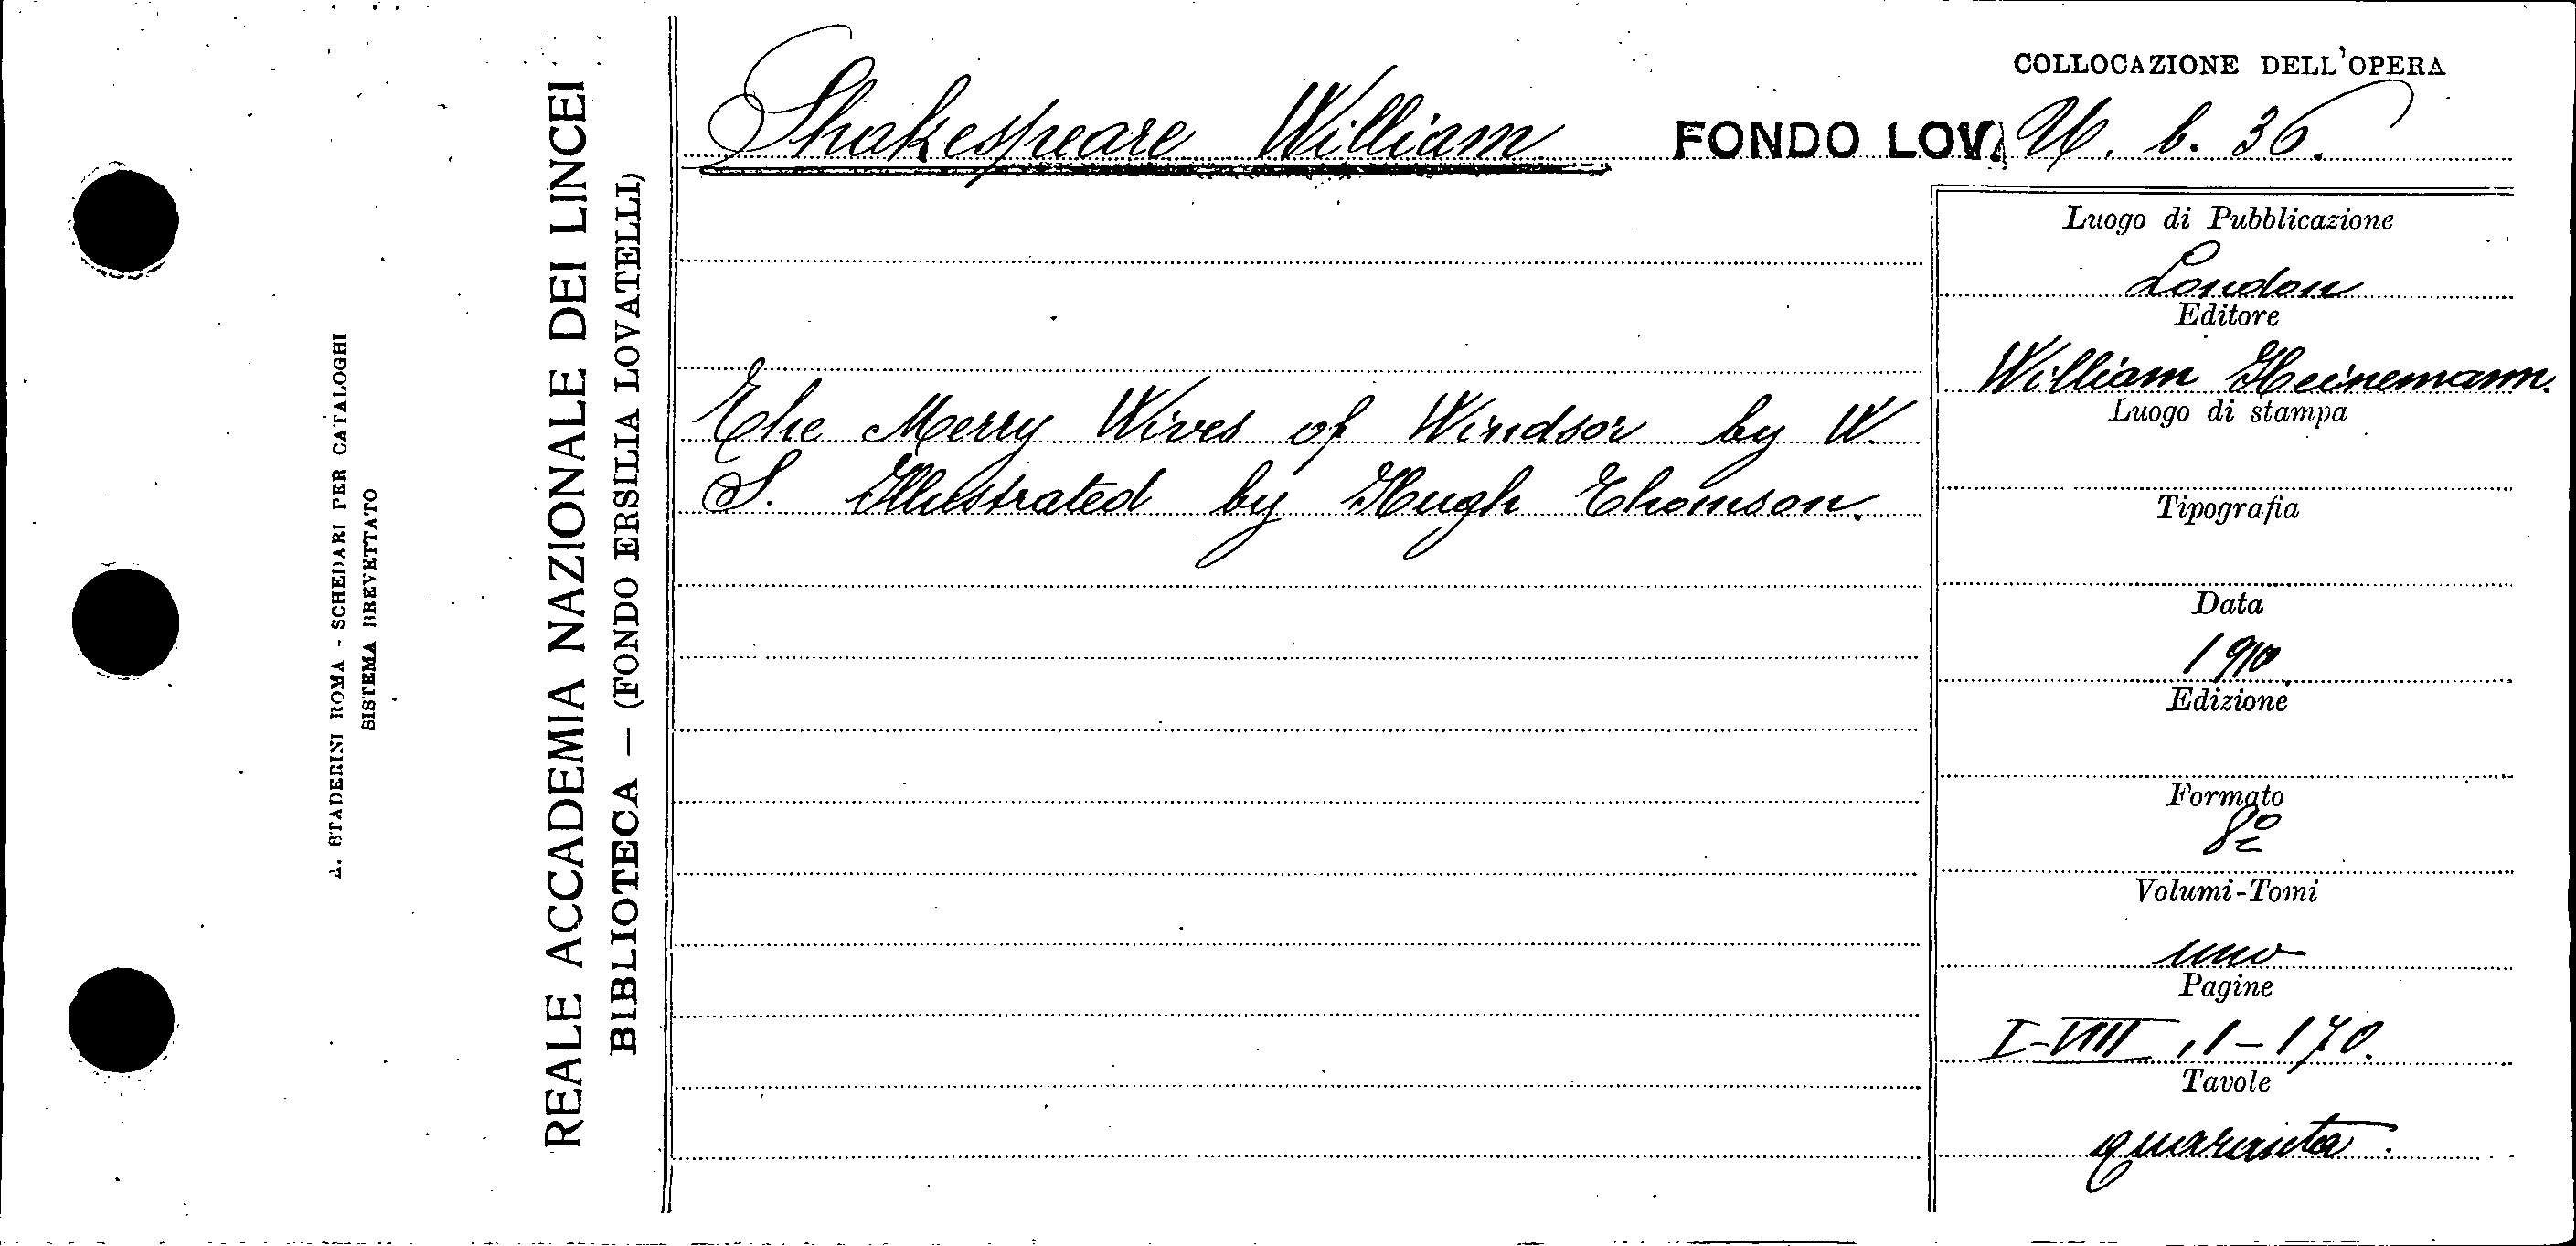 A. STADERINI ROMA - SCHEDARI PER CATALOGHI
SISTEMA BREVETTATO
REALE ACCADEMIA NAZIONALE DEI LINCEI
BIBLIOTECA — (FONDO ERSILIA LOVATELLI)
COLLOCAZIONE DELL'OPERA
Shakespeare William FONDO LOV. b. 36.
The Merry Wives of Windsor by W.
S. Illustrated by Hugh Thomson.
Luogo di Pubblicazione
London
Editore
William Heinemann.
Luogo di stampa
Tipografia
Data
1910
Edizione
Formato
8º
Volumi-Tomi
uno
Pagine
I-VIII, 1-170.
Tavole
quaranta.